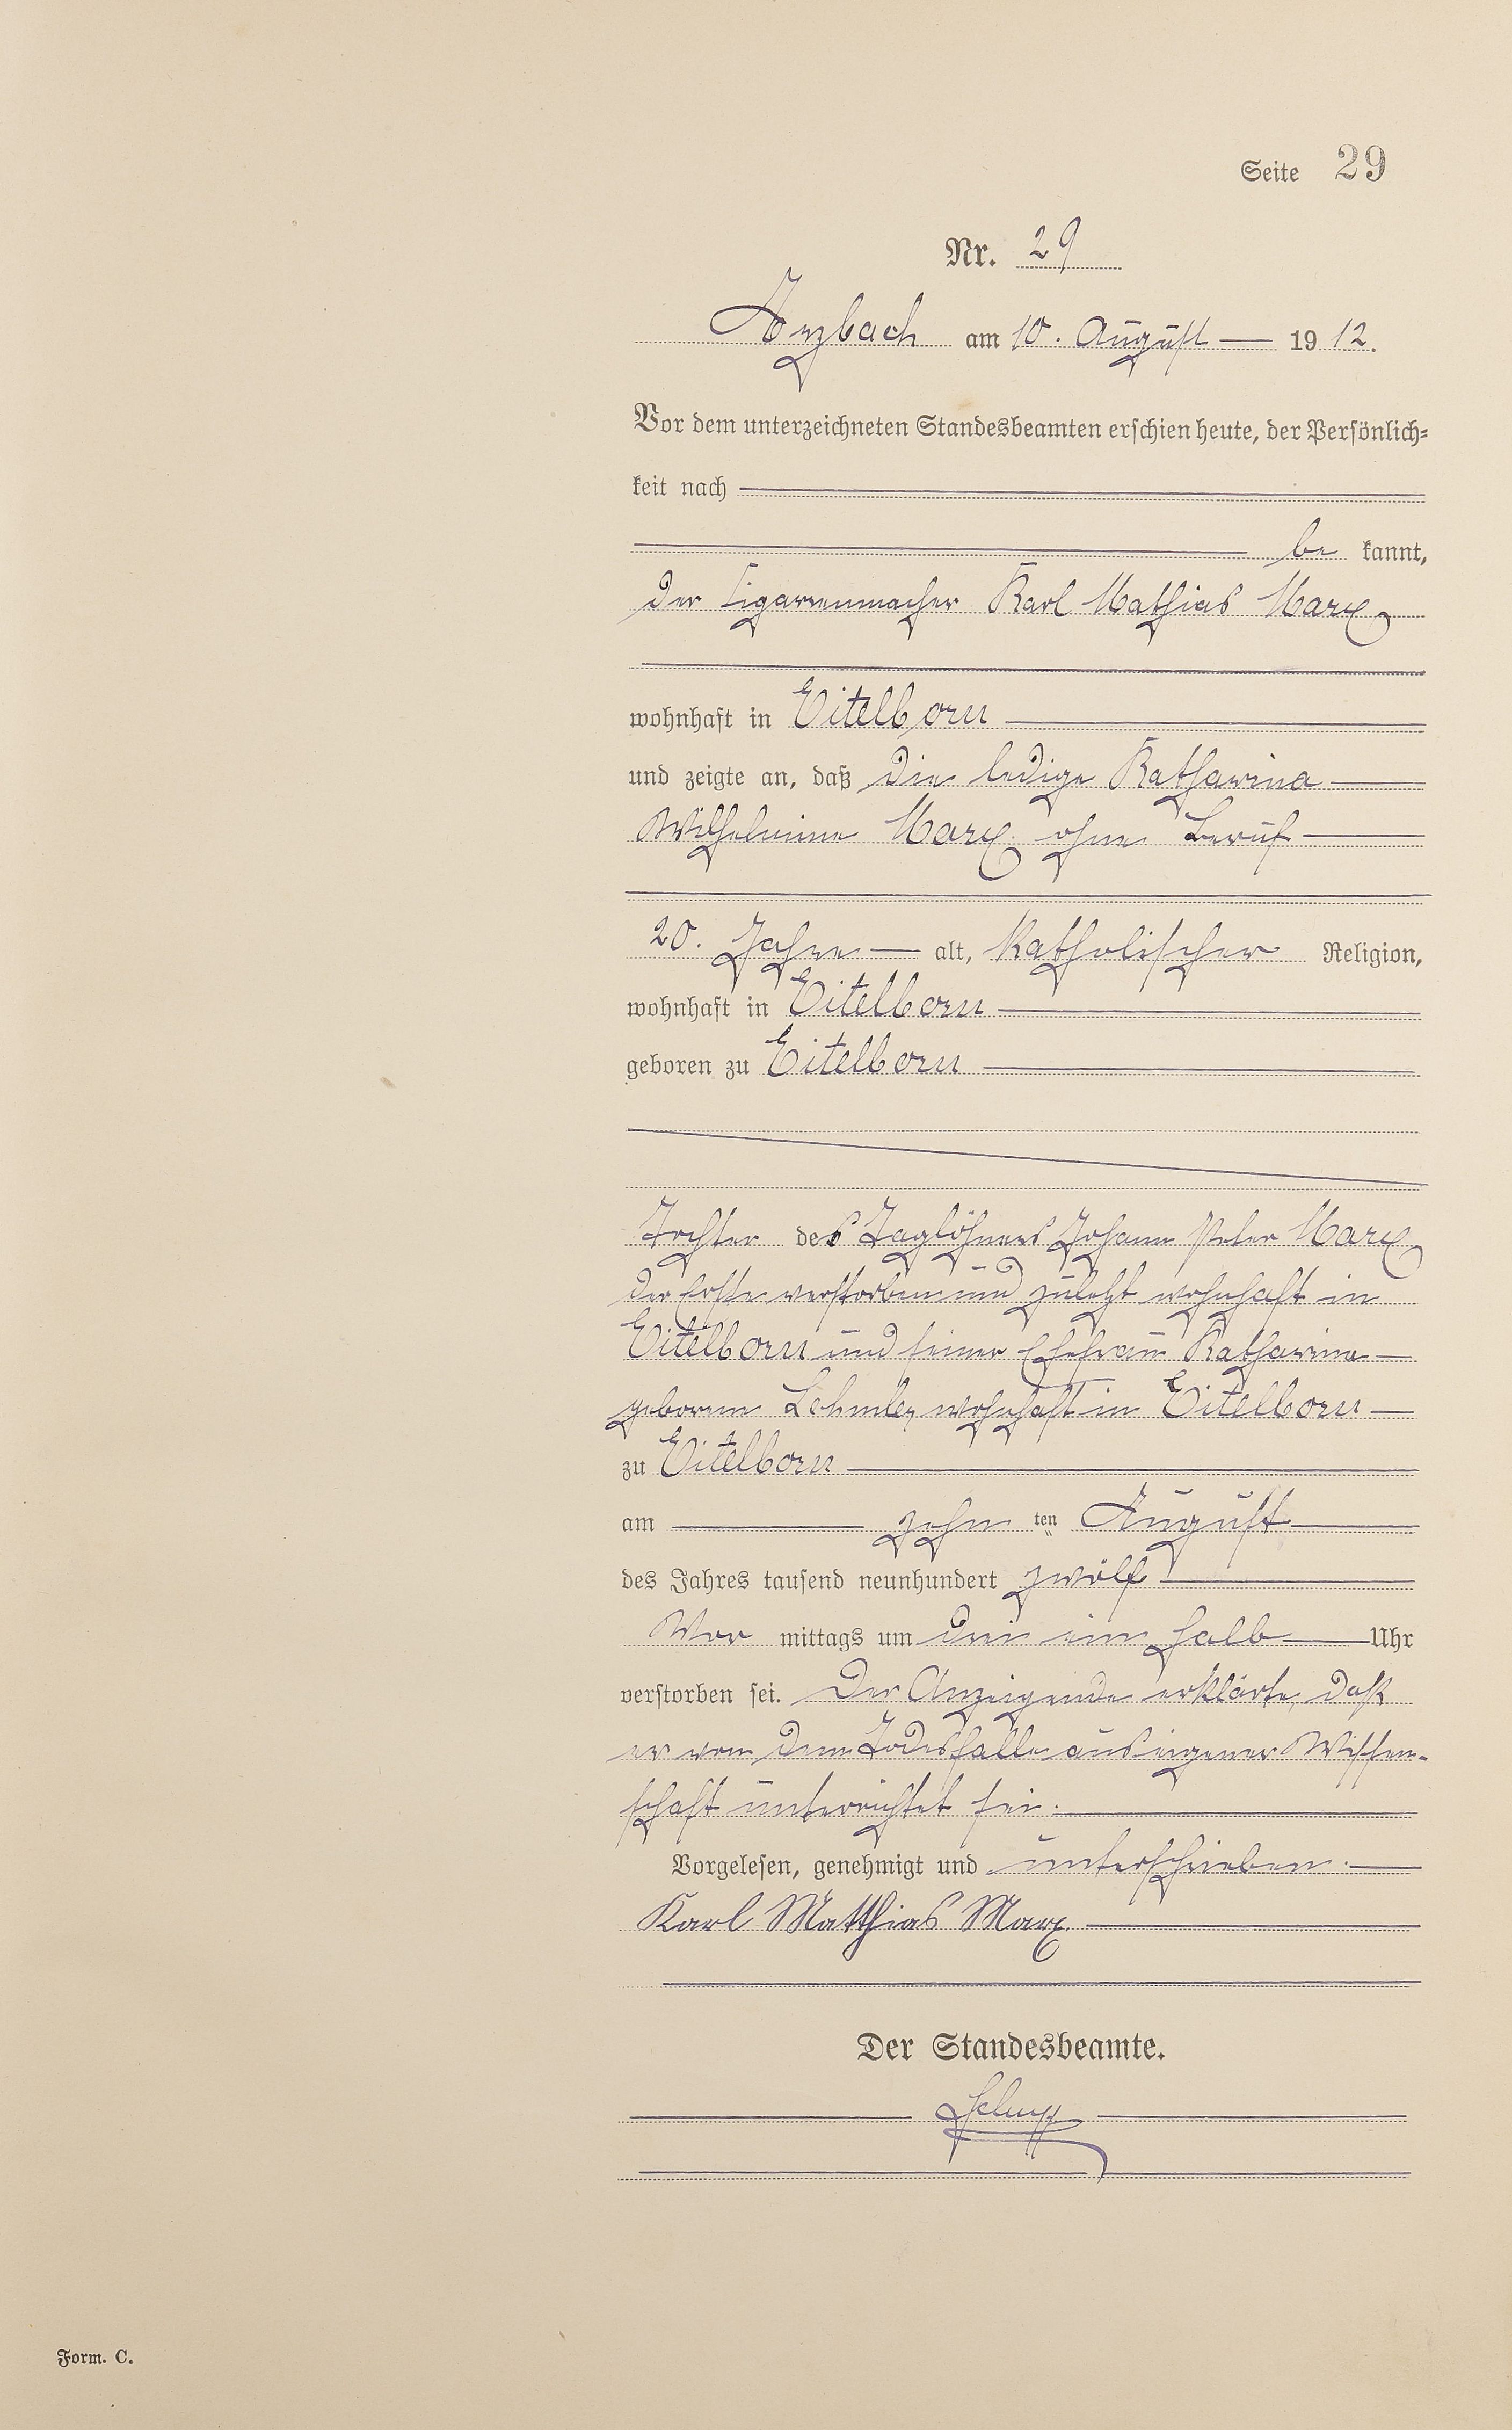 Seite 29
Nr. 29
Arzbach am 10. August 1912.
Vor dem unterzeichneten Standesbeamten erschien heute, der Persönlich=
keit nach
be kannt,
der Cigarrenmacher Karl Mathias Marx
wohnhaft in Eitelborn
und zeigte an, daß die ledige Katharina
Wilhelmine Marx ohne Beruf
20. Jahre alt, katholischer Religion,
wohnhaft in Eitelborn
geboren zu Eitelborn
Tochter des Taglöhners Johann Peter Marx
der Erste verstorben und zuletzt wohnhaft in
Eitelborn und seiner Ehefrau Katharina
geborene wohnhaft in Eitelborn
zu Eitelborn
am zehn ten August
des Jahres tausend neunhundert zwölf
Vor mittags um drei ein halb Uhr
verstorben sei. Der Anzeigende erklärte, daß
er von dem Todesfalle aus eigener Wissen-
schaft unterrichtet sei.
Vorgelesen, genehmigt und unterschrieben.
Karl Matthias Marx.
Der Standesbeamte.
Form. C.